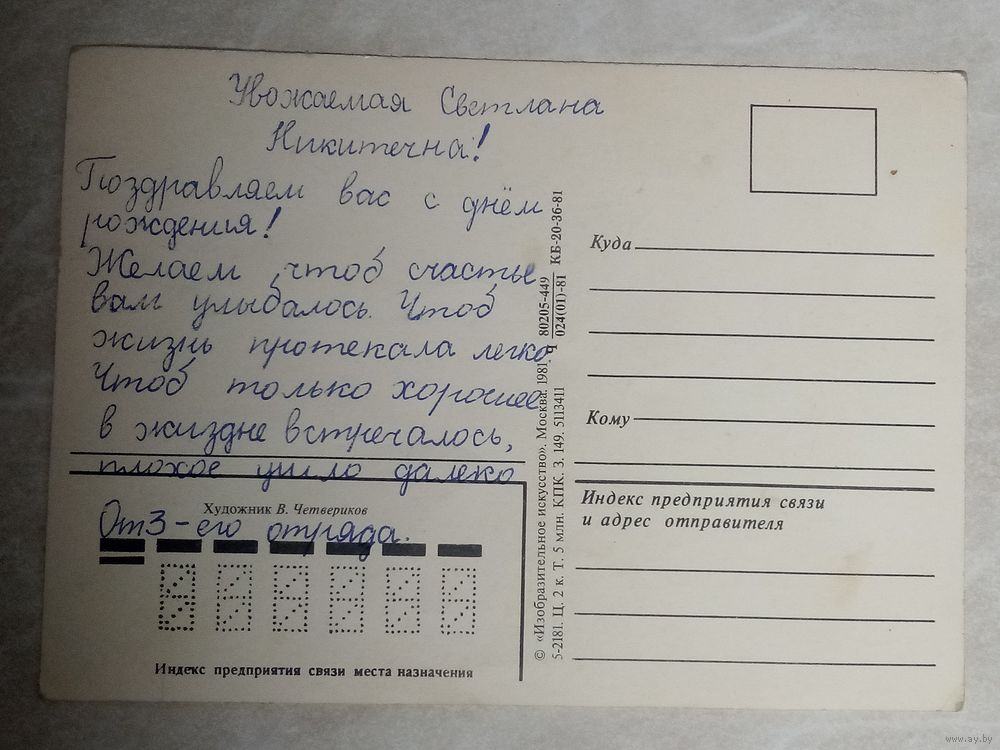 Уважаемая Светлана
Никитечна!
Поздравляем вас с днём
рождения!
Желаем, чтоб счастье
вам улыбалось. Чтоб
жизнь протекала легко
Чтоб только хорошее
в жиздне встречалось,
плохое ушло далеко
Художник В. Четвериков
От 3-его отряда.
Индекс предприятия связи места назначения
© «Изобразительное искусство». Москва. 1981. Ч 80205-449
024(01)-81 КБ-20-36-81
5-2181. Ц. 2 к. Т. 5 млн. КПК. З. 149. 5113411
Куда
Кому
Индекс предприятия связи
и адрес отправителя
www.ay.by